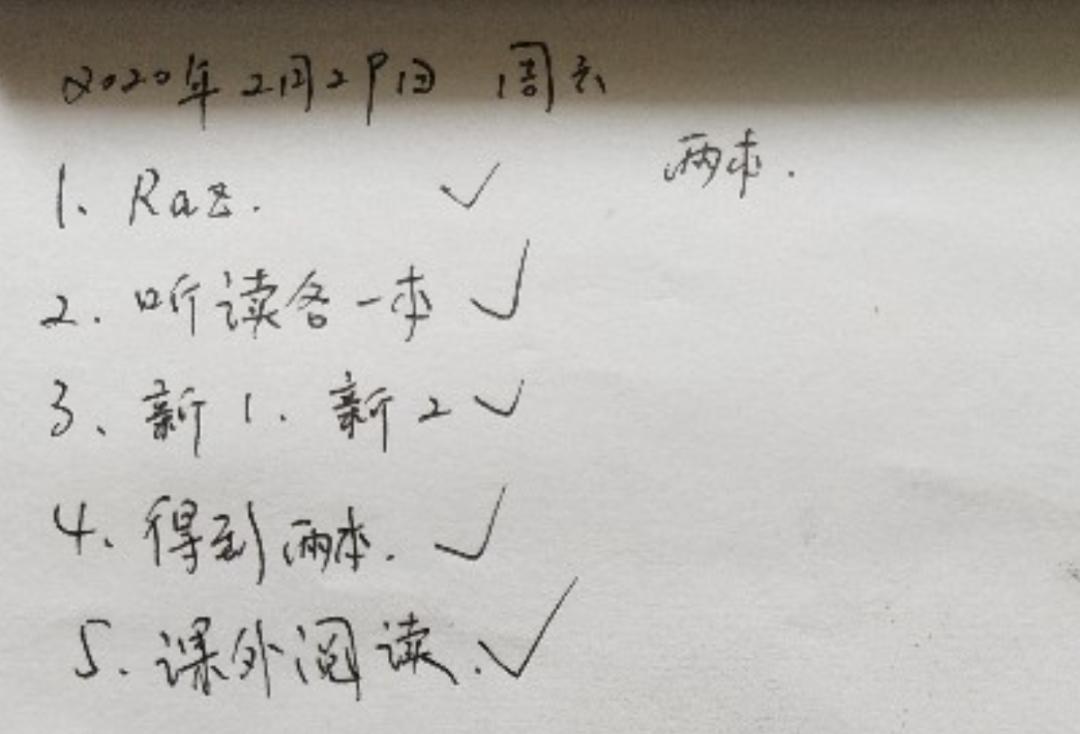 2020年2月29日 周六
两本.
1、Raz. ✓
2. 听读各一本 ✓
3、新1. 新2 ✓
4、得到两本. ✓
5、课外阅读. ✓